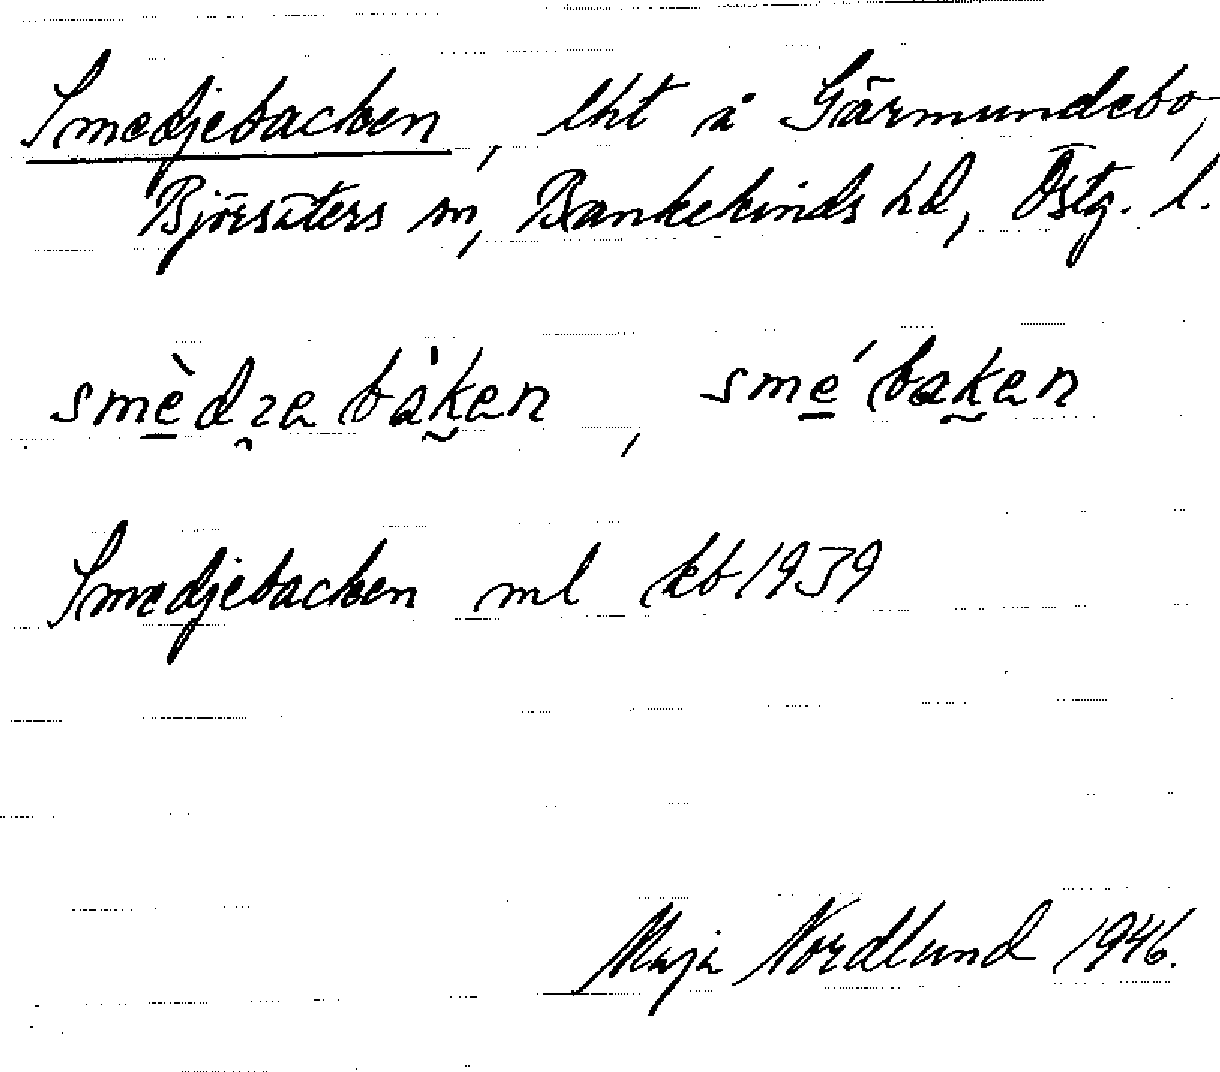 Smedjebacken, lht å Gärmundebo,
Björsäters sn, Bankekinds hd, Östg. l.
smèdʒebàken, smébaken
Smedjebacken ml kb 1939
Maja Nordlund 1946.